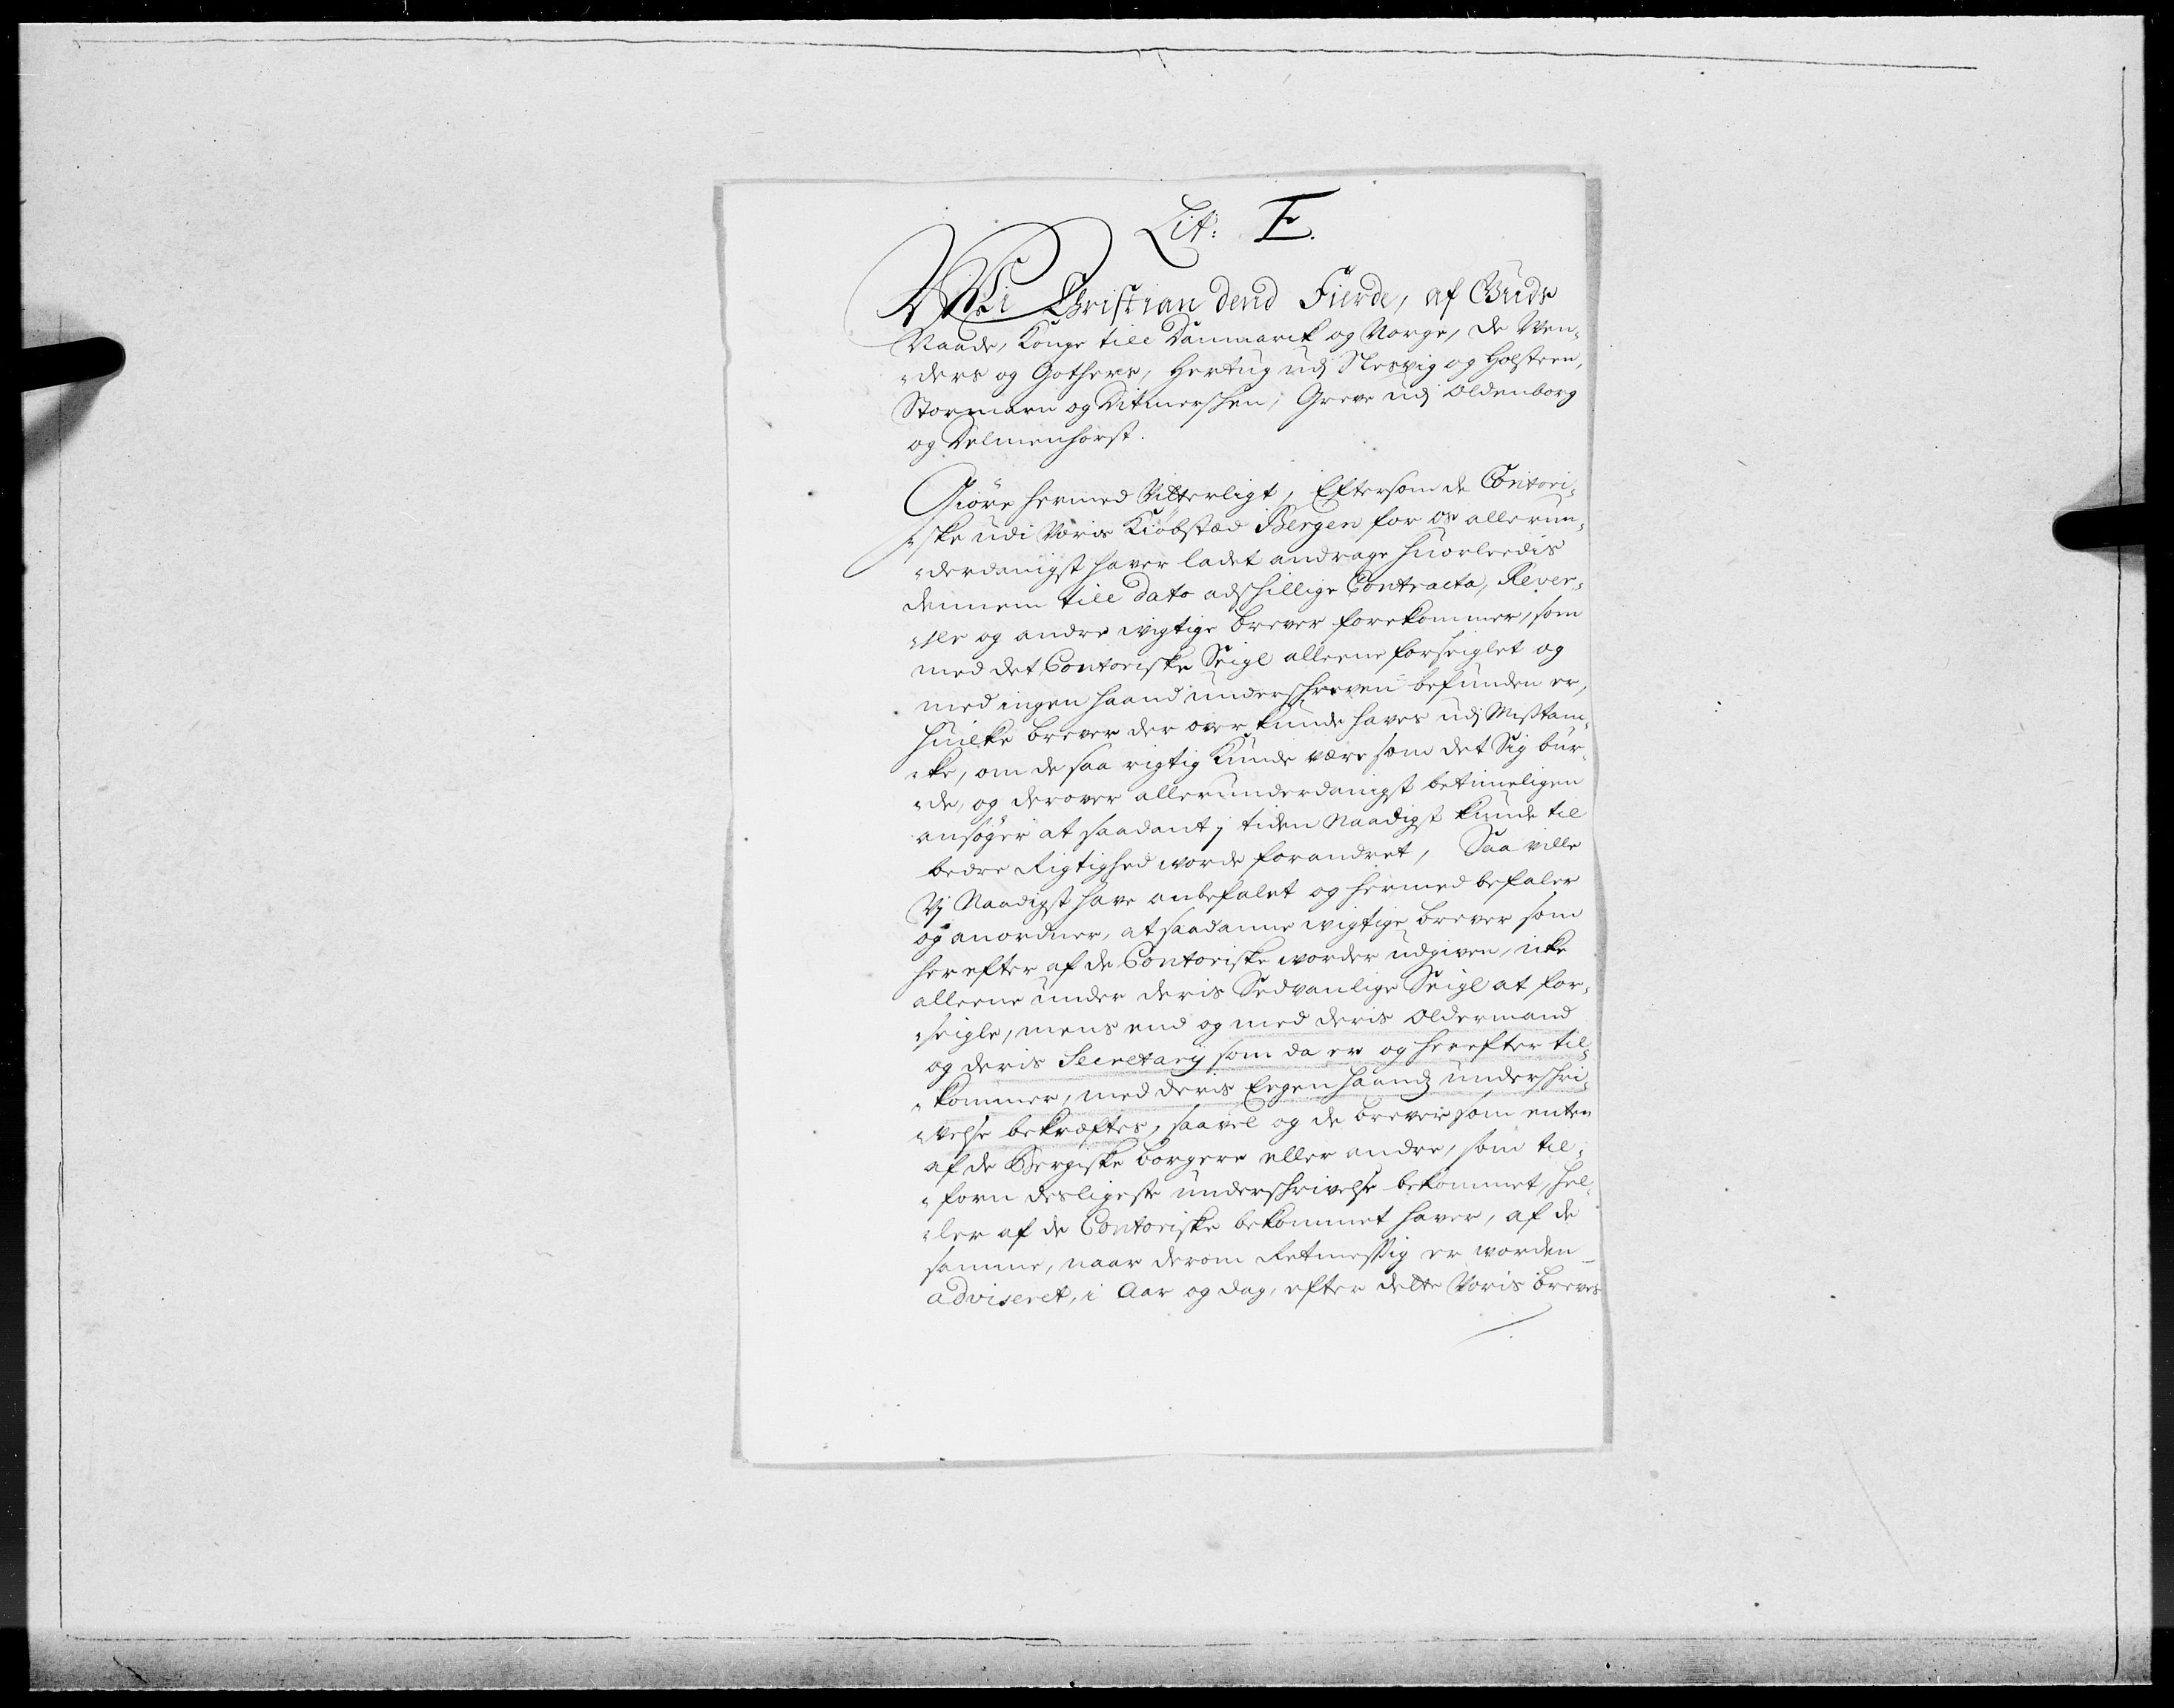 Lit: E.
Wi Christian dend Fierde, af Guds
Naade, Konge till Danmarck og Norge, de Wen-
-ders og Gothers, Hertug udj Slesvig og Holsteen,
Stormarn og Ditmerschen, Greve udj Oldenborg
og Delmenhorst.
Giöre hermed Vitterligt, Eftersom de Contori-
-ske udi Voris Kiöbstæd Bergen for os allerun-
-derdanigst haver ladet andrage huorleedis
dennem till dato adskillige Contracta, Rever-
-ser og andre wigtige breve forekommer, som
med det Contoriske Seigl alleene forseiglet og
med ingen haand underschreven befunden er,
huilke breve der over kunde haves udj Mistan-
-ke, om de saa rigtig kunde være som det Sig bur-
-de, og derover allerunderdanigst betimeligen
ansøger at saadant j tiden Naadigst kunde til
bedre Rigtighed worde forandret, Saa ville
Vj Naadigst have anbefalet og hermed befaler
og anordner, at saadanne wigtige breve som
her efter af de Contoriske worder udgiven, icke
alleene under deris Sedvanlige Seigl at for-
-seigle, mens end og med deris Oldermand
og deris Secretarij som da er og herefter til-
-kommer, med deris Eegen haands underschri-
-velse bekræftes, saavel og de breve som enten
af de Bergiske borgere eller andre, som til-
-forn desligeste underschrivelse bekommet, hel-
-ler af de Contoriske bekommet haver, af de
samme, naar derom Retmessig er worden
adviseret, i Aar og dag, efter dette Voris brevs